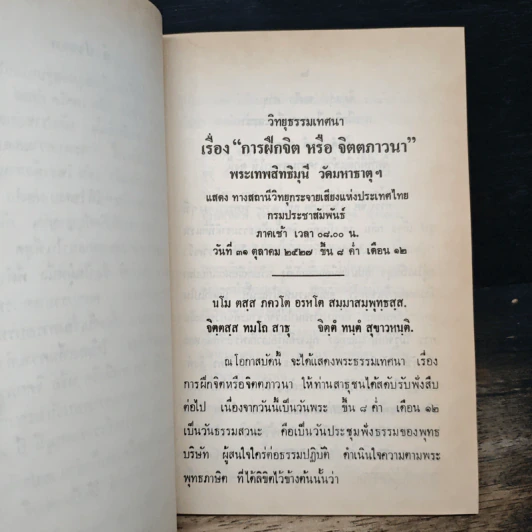 วิทยุธรรมเทศนา
เรื่อง “การฝึกจิต หรือ จิตตภาวนา”
พระเทพสิทธิมุนี วัดมหาธาตุฯ
แสดง ทางสถานีวิทยุกระจายเสียงแห่งประเทศไทย
กรมประชาสัมพันธ์
ภาคเช้า เวลา ๐๘.๐๐ น.
วันที่ ๓๑ ตุลาคม ๒๕๒๗ ขึ้น ๘ ค่ำ เดือน ๑๒
นโม ตสฺส ภควโต อรหโต สมฺมาสมฺพุทฺธสฺส.
จิตฺตสฺส ทมโถ สาธุ จิตฺตํ ทนฺตํ สุขาวหนฺติ.
ณ โอกาสบัดนี้ จะได้แสดงพระธรรมเทศนา เรื่อง
การฝึกจิตหรือจิตตภาวนา ให้ท่านสาธุชนได้สดับรับฟังสืบ
ต่อไป เนื่องจากวันนี้เป็นวันพระ ขึ้น ๘ ค่ำ เดือน ๑๒
เป็นวันธรรมสวนะ คือเป็นวันประชุมฟังธรรมของพุทธ
บริษัท ผู้สนใจใคร่ต่อธรรมปฏิบัติ ดำเนินใจความตามพระ
พุทธภาษิต ที่ได้ลิขิตไว้ข้างต้นนั้นว่า